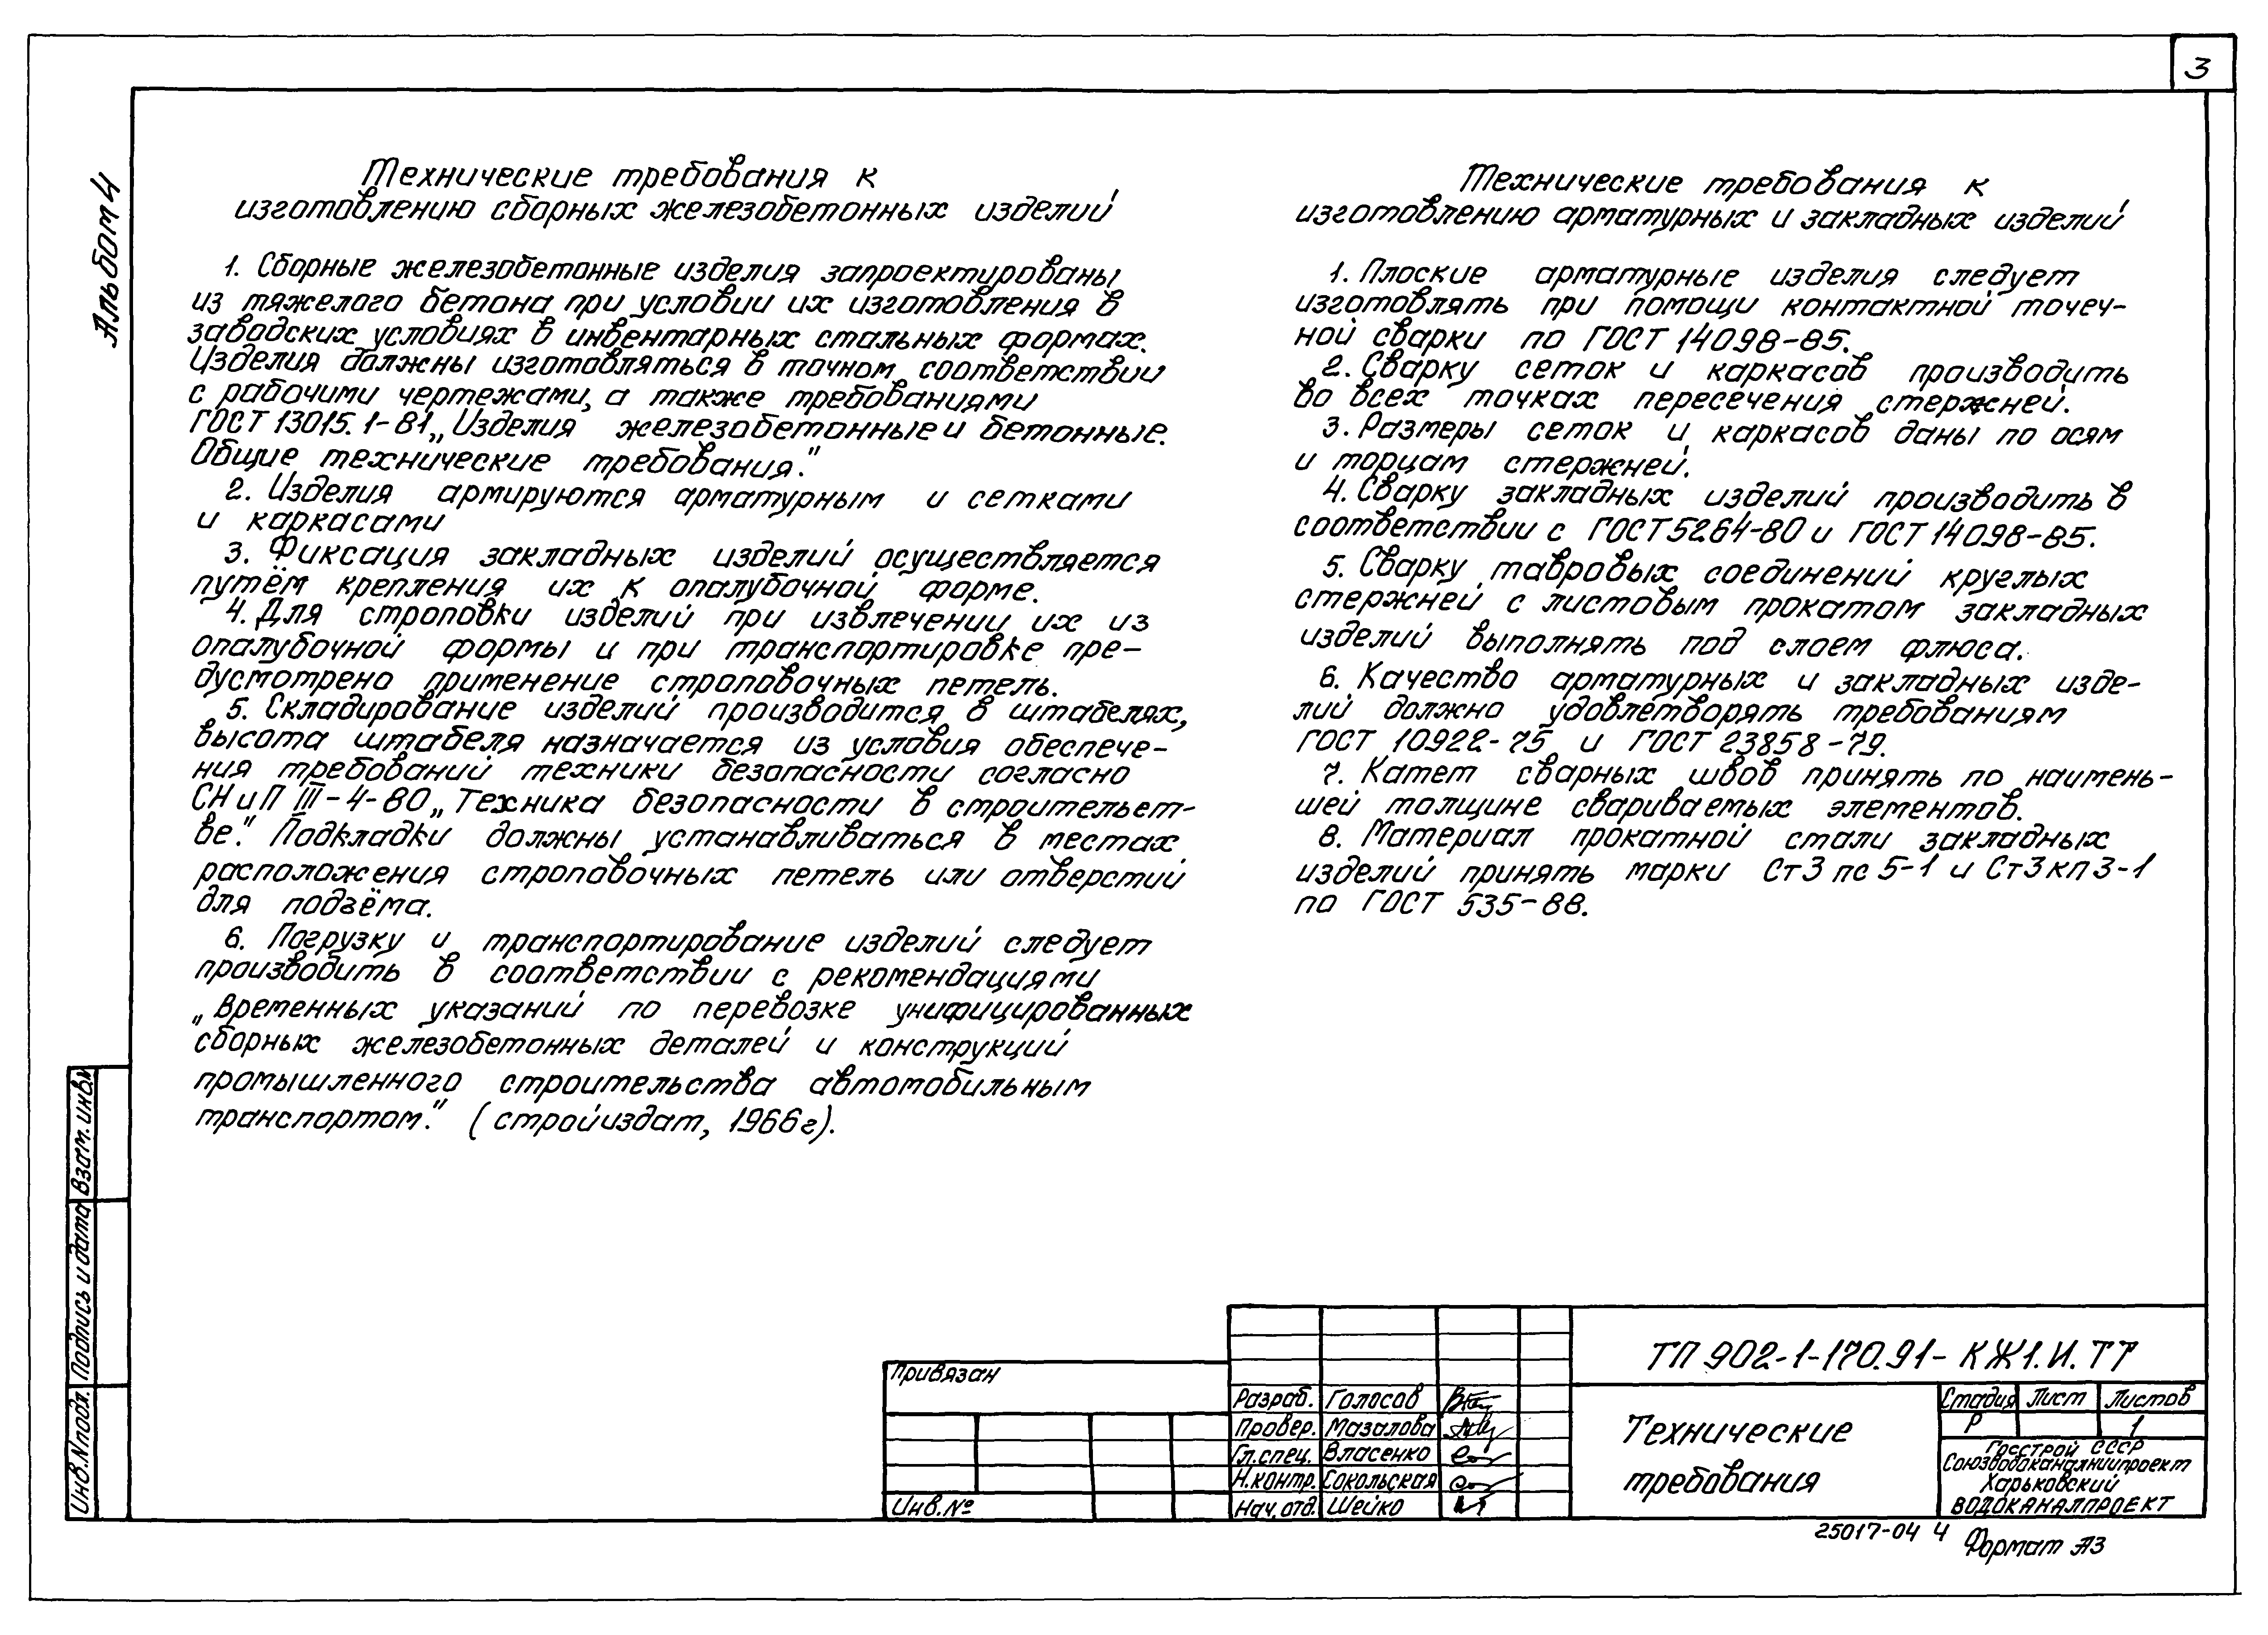 3
Альбом 4
Технические требования к
изготовлению сборных железобетонных изделий
1. Сборные железобетонные изделия запроектированы
из тяжелого бетона при условии их изготовления в
заводских условиях в инвентарных стальных формах.
Изделия должны изготовляться в точном соответствии
с рабочими чертежами, а также требованиями
ГОСТ 13015.1-81 „Изделия железобетонные и бетонные.
Общие технические требования."
2. Изделия армируются арматурным и сетками
и каркасами
3. Фиксация закладных изделий осуществляется
путём крепления их к опалубочной форме.
4. Для строповки изделий при извлечении их из
опалубочной формы и при транспортировке пре-
дусмотрено применение строповочных петель.
5. Складирование изделий производится в штабелях,
высота штабеля назначается из условия обеспече-
ния требований техники безопасности согласно
СНиП III-4-80 „Техника безопасности в строительст-
ве". Подкладки должны устанавливаться в местах
расположения строповочных петель или отверстий
для подъёма.
6. Погрузку и транспортирование изделий следует
производить в соответствии с рекомендациями
„Временных указаний по перевозке унифицированных
сборных железобетонных деталей и конструкций
промышленного строительства автомобильным
транспортом." (стройиздат, 1966г).
Технические требования к
изготовлению арматурных и закладных изделий
1. Плоские арматурные изделия следует
изготовлять при помощи контактной точеч-
ной сварки по ГОСТ 14098-85.
2. Сварку сеток и каркасов производить
во всех точках пересечения стержней.
3. Размеры сеток и каркасов даны по осям
и торцам стержней.
4. Сварку закладных изделий производить в
соответствии с ГОСТ 5264-80 и ГОСТ 14098-85.
5. Сварку тавровых соединений круглых
стержней с листовым прокатом закладных
изделий выполнять под слоем флюса.
6. Качество арматурных и закладных изде-
лий должно удовлетворять требованиям
ГОСТ 10922-75 и ГОСТ 23858-79.
7. Катет сварных швов принять по наимень-
шей толщине свариваемых элементов.
8. Материал прокатной стали закладных
изделий принять марки Ст3 пс 5-1 и Ст3 кп 3-1
по ГОСТ 535-88.
Взам. инв.№
Подпись и дата
Инв.N подл.
Привязан
Инв.№
Разраб. Голосов
Провер. Мазалова
Гл.спец. Власенко
Н.контр. Сокольская
Нач.отд. Шейко
ТП 902-1-170.91- КЖ1.И.ТТ
Технические
требования
Стадия Лист Листов
Р 1
Госстрой СССР
Союзводоканалниипроект
Харьковский
ВОДОКАНАЛПРОЕКТ
25017-04 4
Формат А3